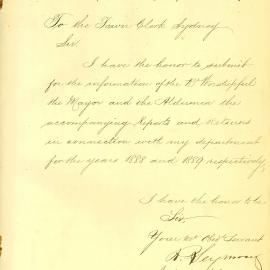 To the Town Clerk Sydney
Sir.
I have the honor to submit
for the information of the Rt Worshipful
the Mayor and the Aldermen the
accompanying Reports and Returns
in connection with my department
for the years 1888 and 1889 respectively,
I have the honor to be
Sir,
Your Obed Servant
R Seymour